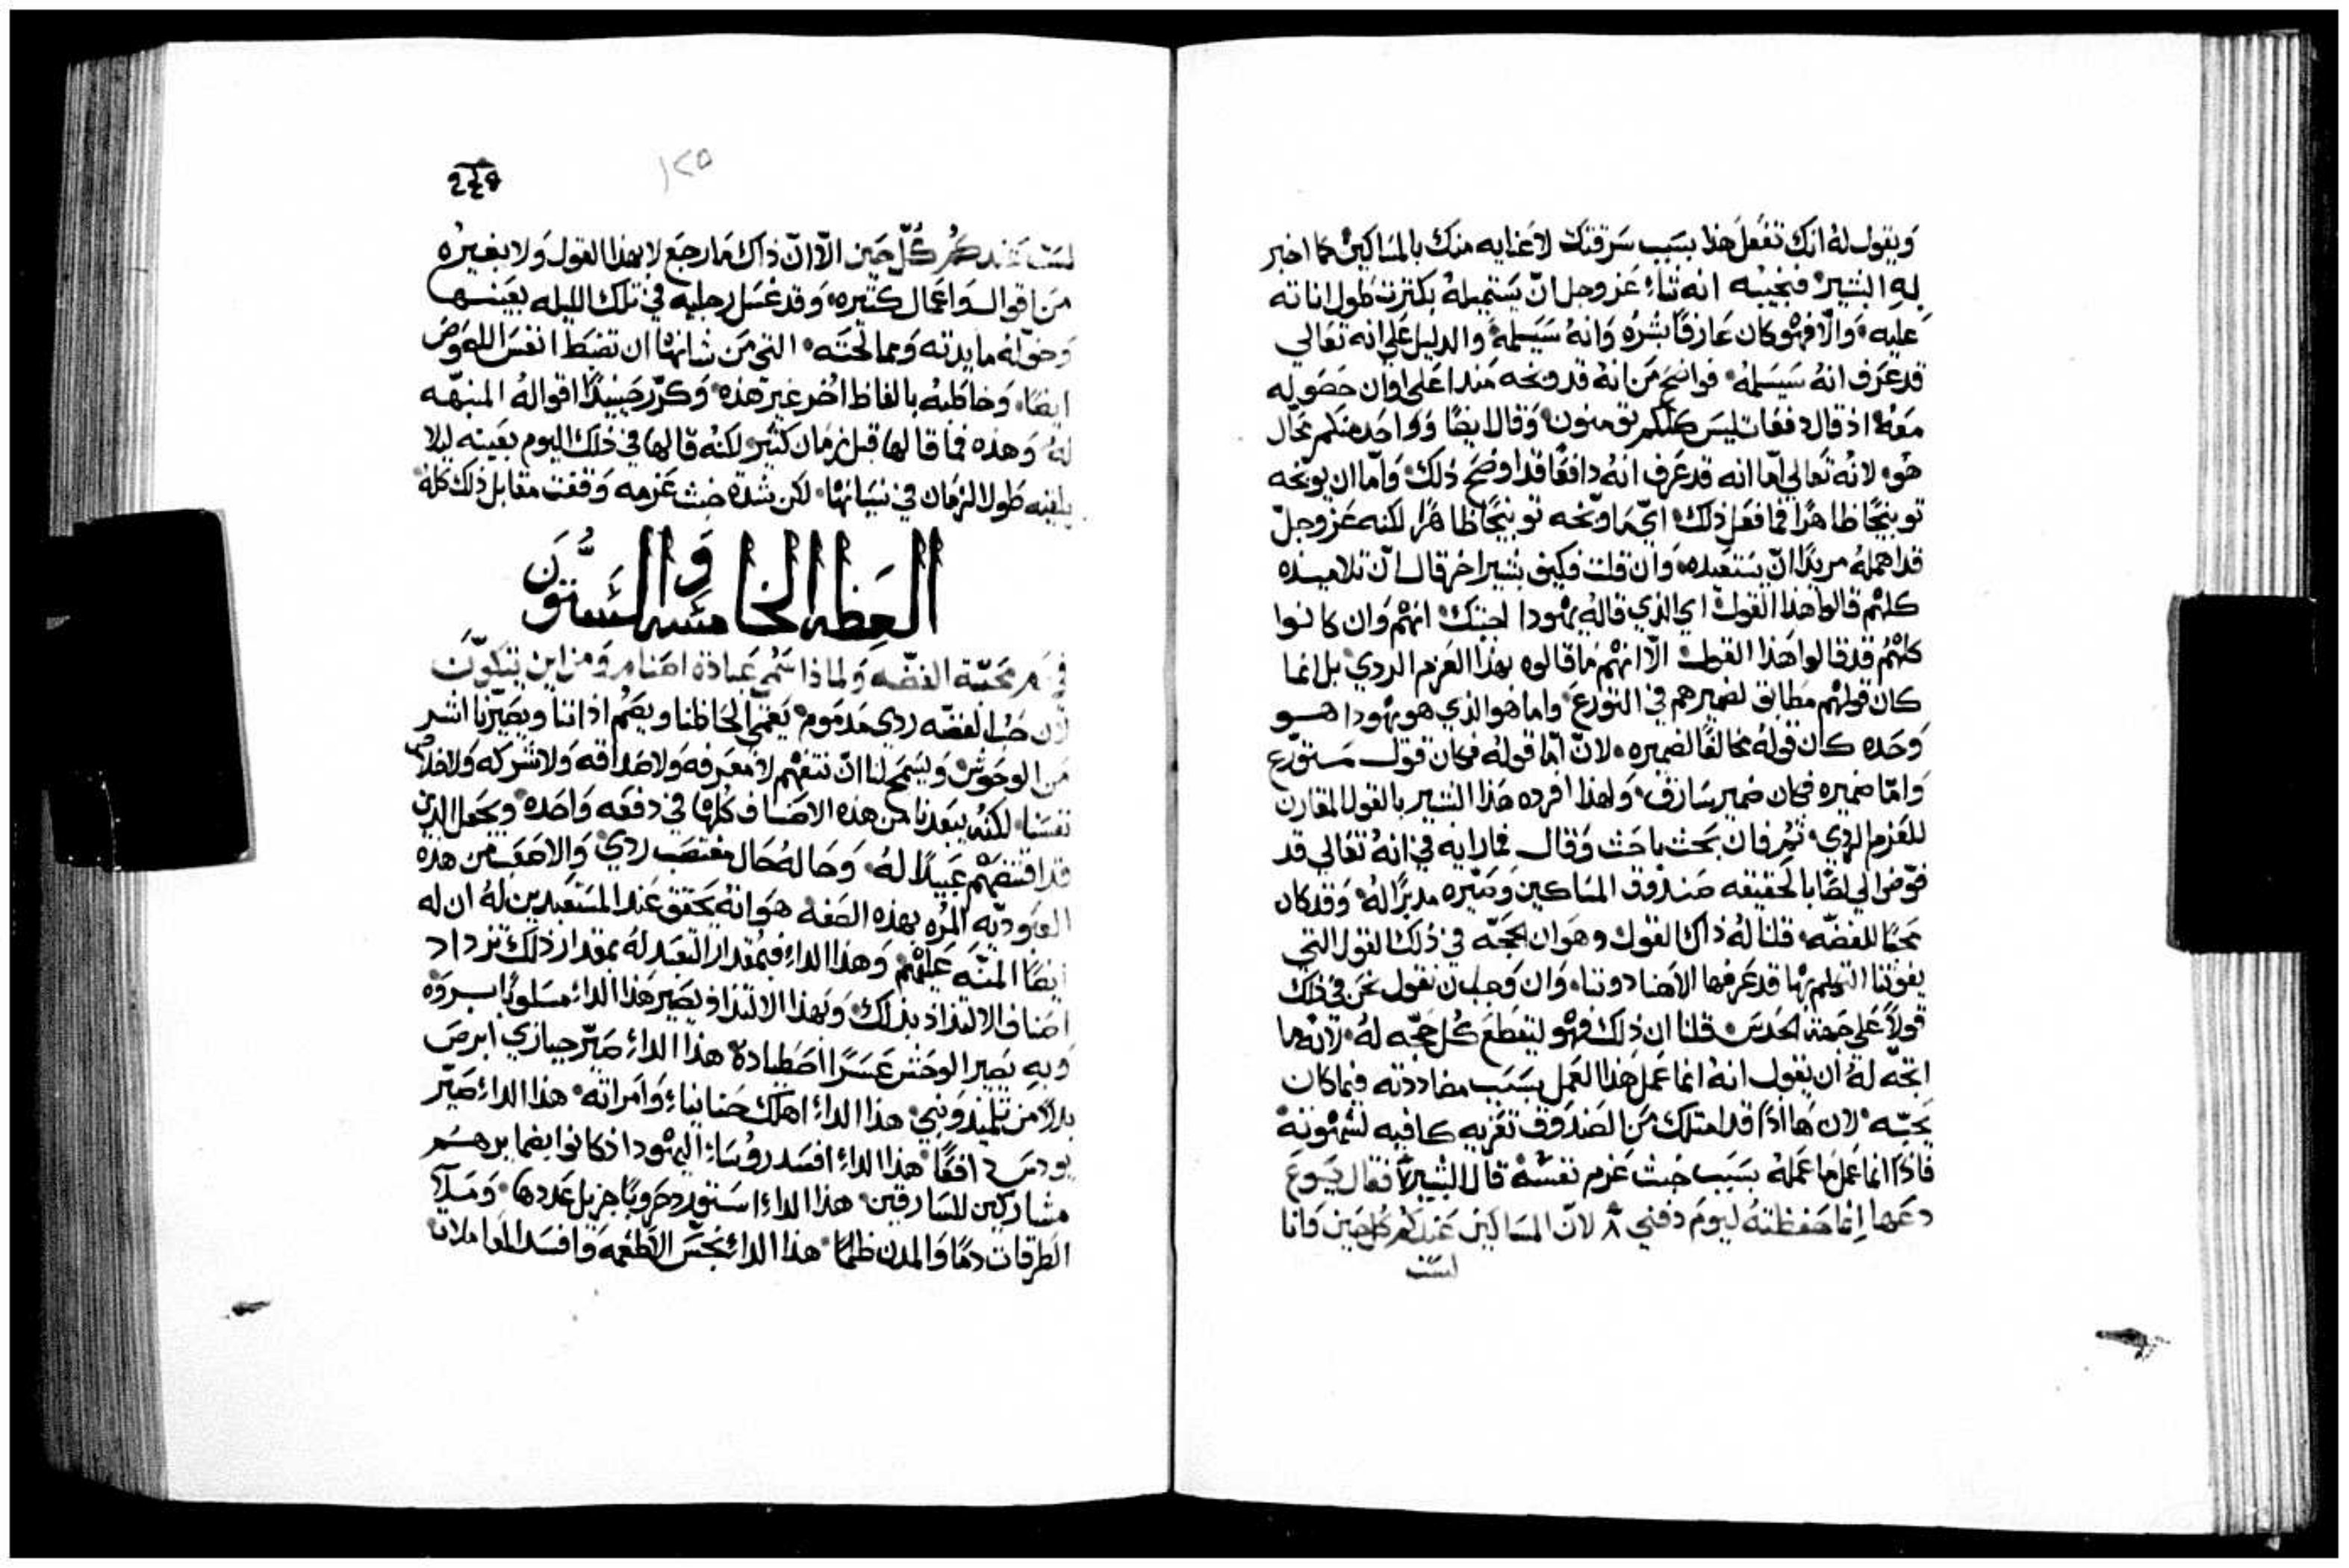 ويقول له انك تفعل هذا بسبب سرقتك لا عنايه منك بالمساكين كما اخبر
له البشير فنجيبه انه شاء عز وجل ان يستميله بكثرت طول اناته
عليه والا فهو كان عارفا بشره وانه سيسلمه والدليل على انه تعالي
قد عرف انه سيسلمه فواضح من انه قد وبخه منذ اعلى اوان حصوله
معه اذ قال دفعات ليس كلكم تومنون وقال ايضا وواحد منكم محال
هو لانه تعالي اما انه قد عرف انه دافعا قد اوضح ذلك واما ان يوبخه
توبيخا ظاهرا فما فعل ذلك اي ما وبخه توبيخا ظاهرا لكنه عز وجل
قد اهمله مريدا ان يستعيده وان قلت فكيف بشير اخر قال ان تلاميذه
كلهم قالوا هذا القول اي الذي قاله يهودا اجبتك انهم وان كانوا
كلهم قد قالوا هذا القول الا انهم ما قالوه بهذا العزم الردي بل انما
كان قولهم مطابق لضميرهم في التورع واما هو الذي هو يهودا هو
وحده كان قوله مخالفا لضميره لان اما قوله فكان قول متورع
واما ضميره فكان ضمير سارق ولهذا افرده هذا البشير بالقول المقارن
للعزم الردي ثم فان بحث باحث وقال فما رايه في انه تعالي قد
فوض الي لص بالحقيقه صندوق المساكين وصيره مدبرا له وقد كان
محبا للفضه قلنا له ذاك القول وهو ان الحجه في ذلك القول التي
يفوتنا التكلم بها قد عرفها الاهنا دوننا وان وجب ان نقول نحن في ذلك
قولا على جهة الحدس قلنا ان ذلك فهو ليقطع كل حجه له لانه ما
اتجه له ان يقول انه انما عمل هذا العمل بسبب مضاددته فيما كان
يحبه لان هااذا قد امتلك من الصندوق تعزيه كافيه لشهوته
فاذا انما عمل ما عمله بسبب خبث عزم نفسه قال البشير فقال يسوع
دعها انما حفظته ليوم دفني ٨ لان المساكين عندكم كل حين وانا
لست
248
١٢٥
لست عندكم كل حين الا ان ذاك ما رجع لا بهذا القول ولا بغيره
من اقوال واعمال كثيره وقد غسل رجليه في تلك الليله بعينها
وخوله مايدته ومما لحته التي من شانها ان تضبط انفس اللصوص
ايضا وخاطبه بالفاظ اخر غير هذه وكرر حينيذ اقواله المنبهه
له وهذه فما قالها قبل زمان كثير لكنه قالها في ذلك اليوم بعينه ليلا
يلقيه طول الزمان في نسيانها لكن شدة خبث عزمه وقفت مقابل ذلك كله
العظه الخامسه والستون
في محبة الفضه ولماذا سمي عبادة اصنام ومن اين تتكون
لان حب الفضه ردي مذموم يعمي الحاظنا ويصم اذاننا ويصيرنا اشر
من الوحوش ويسمح لنا ان نتفهم لا معرفه ولا صداقه ولا شركه ولا خلاص
نفسنا لكنه يبعدنا من هذه الاصناف كلها في دفعه واحده ويجعل الذين
قد اقتنصهم عبيدا له وحاله حال مغتصب ردي والاصعب من هذه
العبوديه المره بهذه الصفه هو انه يحقق عند المستعبدين له ان له
ايضا المنه عليهم وهذا الداء فبمقدار التعبد له بمقدار ذلك تزداد
اصناف الالتذاذ بذاك وبهذا الالتذاذ يصير هذا الداء مسلوبا بروه
وبه يصير الوحش عسرا اصطياده هذا الداء صير جيازي ابرص
بدلا من تلميذ ونبي هذا الداء اهلك حنانيا وامراته هذا الداء صير
يودس دافعا هذا الداء افسد روساء اليهود اذ كانوا
مشاركين للسارقين هذا الداء استورد حروبا جزيل عددها وملا
الطرقات دما والمدن ظلما هذا الداء نجس الاطعمه وافسد المعاملات